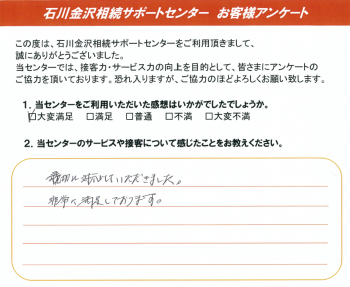 石川金沢相続サポートセンター お客様アンケート
この度は、石川金沢相続サポートセンターをご利用頂きまして、
誠にありがとうございました。
当センターでは、接客力・サービス力の向上を目的として、皆さまにアンケートの
ご協力を頂いております。恐れ入りますが、ご協力のほどよろしくお願い致します。
1. 当センターをご利用いただいた感想はいかがでしたでしょうか。
☑大変満足 □満足 □普通 □不満 □大変不満
2. 当センターのサービスや接客について感じたことをお教えください。
親切に対応していただきました。
非常に満足しております。